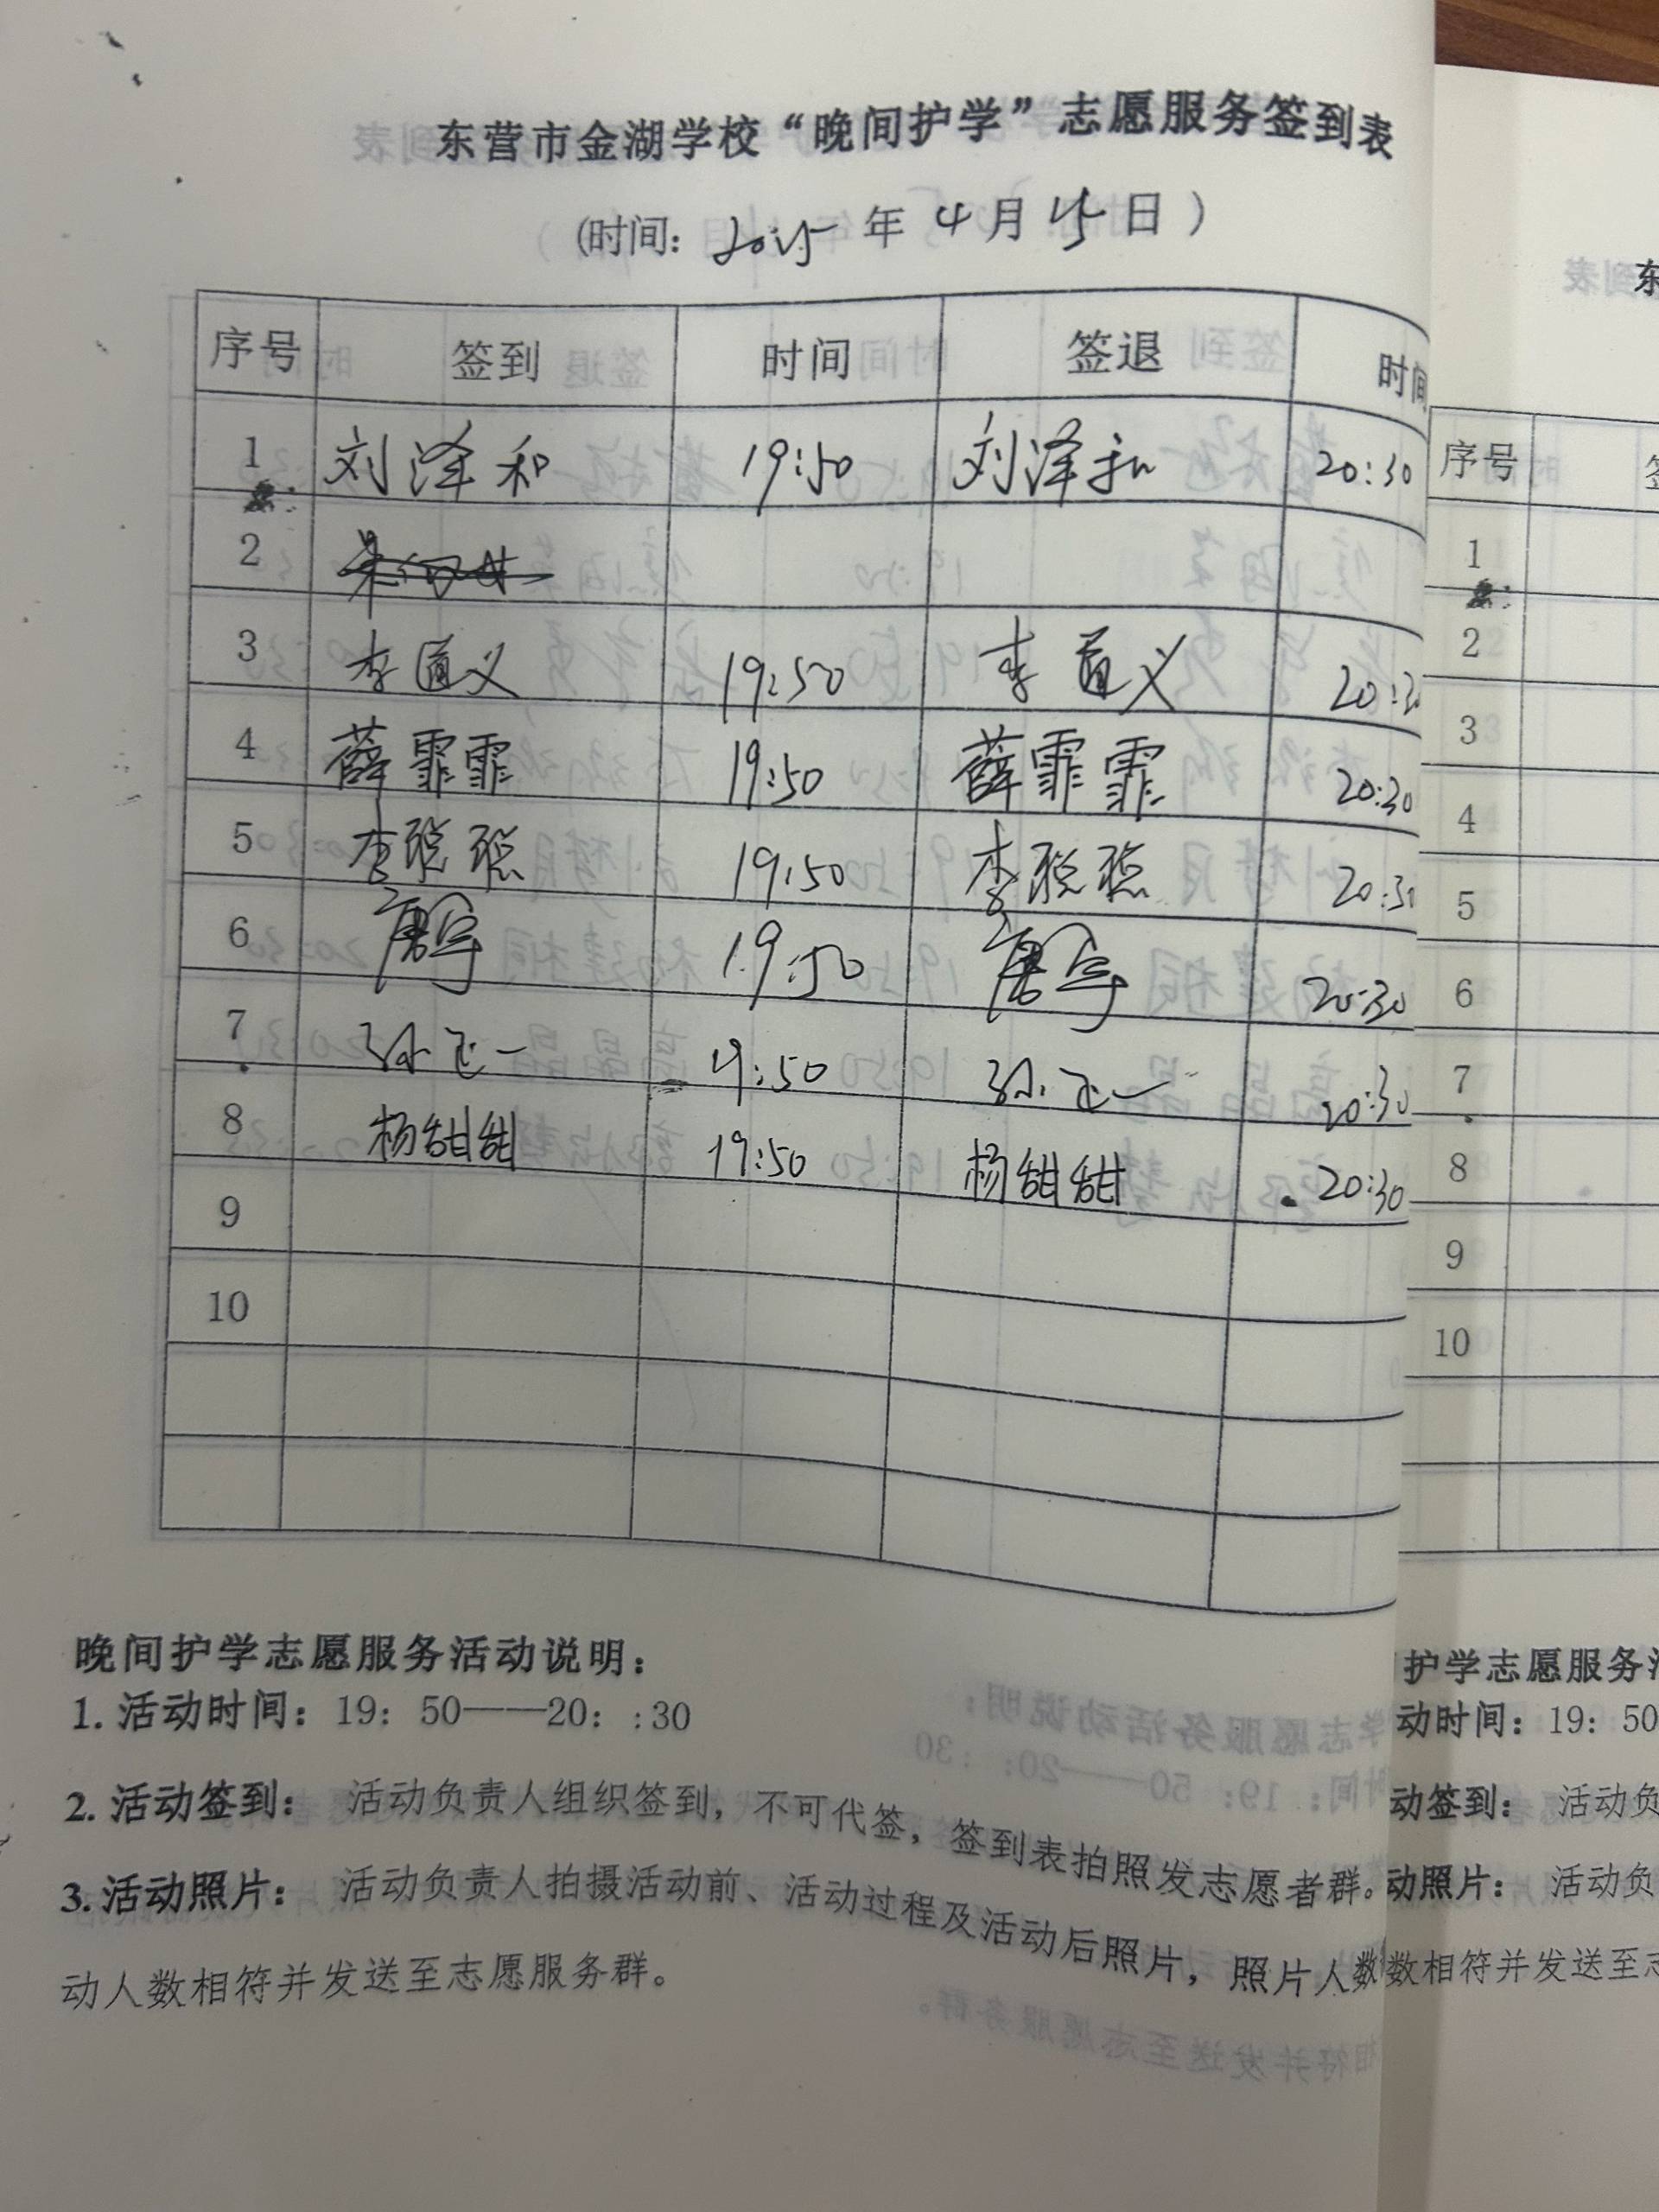 东营市金湖学校“晚间护学”志愿服务签到表
(时间: 2025 年 4 月 15 日 )
序号 签到 时间 签退 时间
1 刘泽和 19:50 刘泽和 20:30
2
3 李道义 19:50 李道义 20:3
4 薛霏霏 19:50 薛霏霏 20:30
5 李聪聪 19:50 李聪聪 20:3
6 唐宇 19:50 唐宇 20:30
7 孙飞一 19:50 孙飞一 20:30
8 杨甜甜 19:50 杨甜甜 20:30
9
10
晚间护学志愿服务活动说明:
1. 活动时间: 19: 50——20: :30
2. 活动签到: 活动负责人组织签到,不可代签,签到表拍照发志愿者群。
3. 活动照片: 活动负责人拍摄活动前、活动过程及活动后照片,照片人数
动人数相符并发送至志愿服务群。
东
序号
1
2
3
4
5
6
7
8
9
10
护学志愿服务
动时间: 19: 50
动签到: 活动负
动照片: 活动负
数相符并发送至志